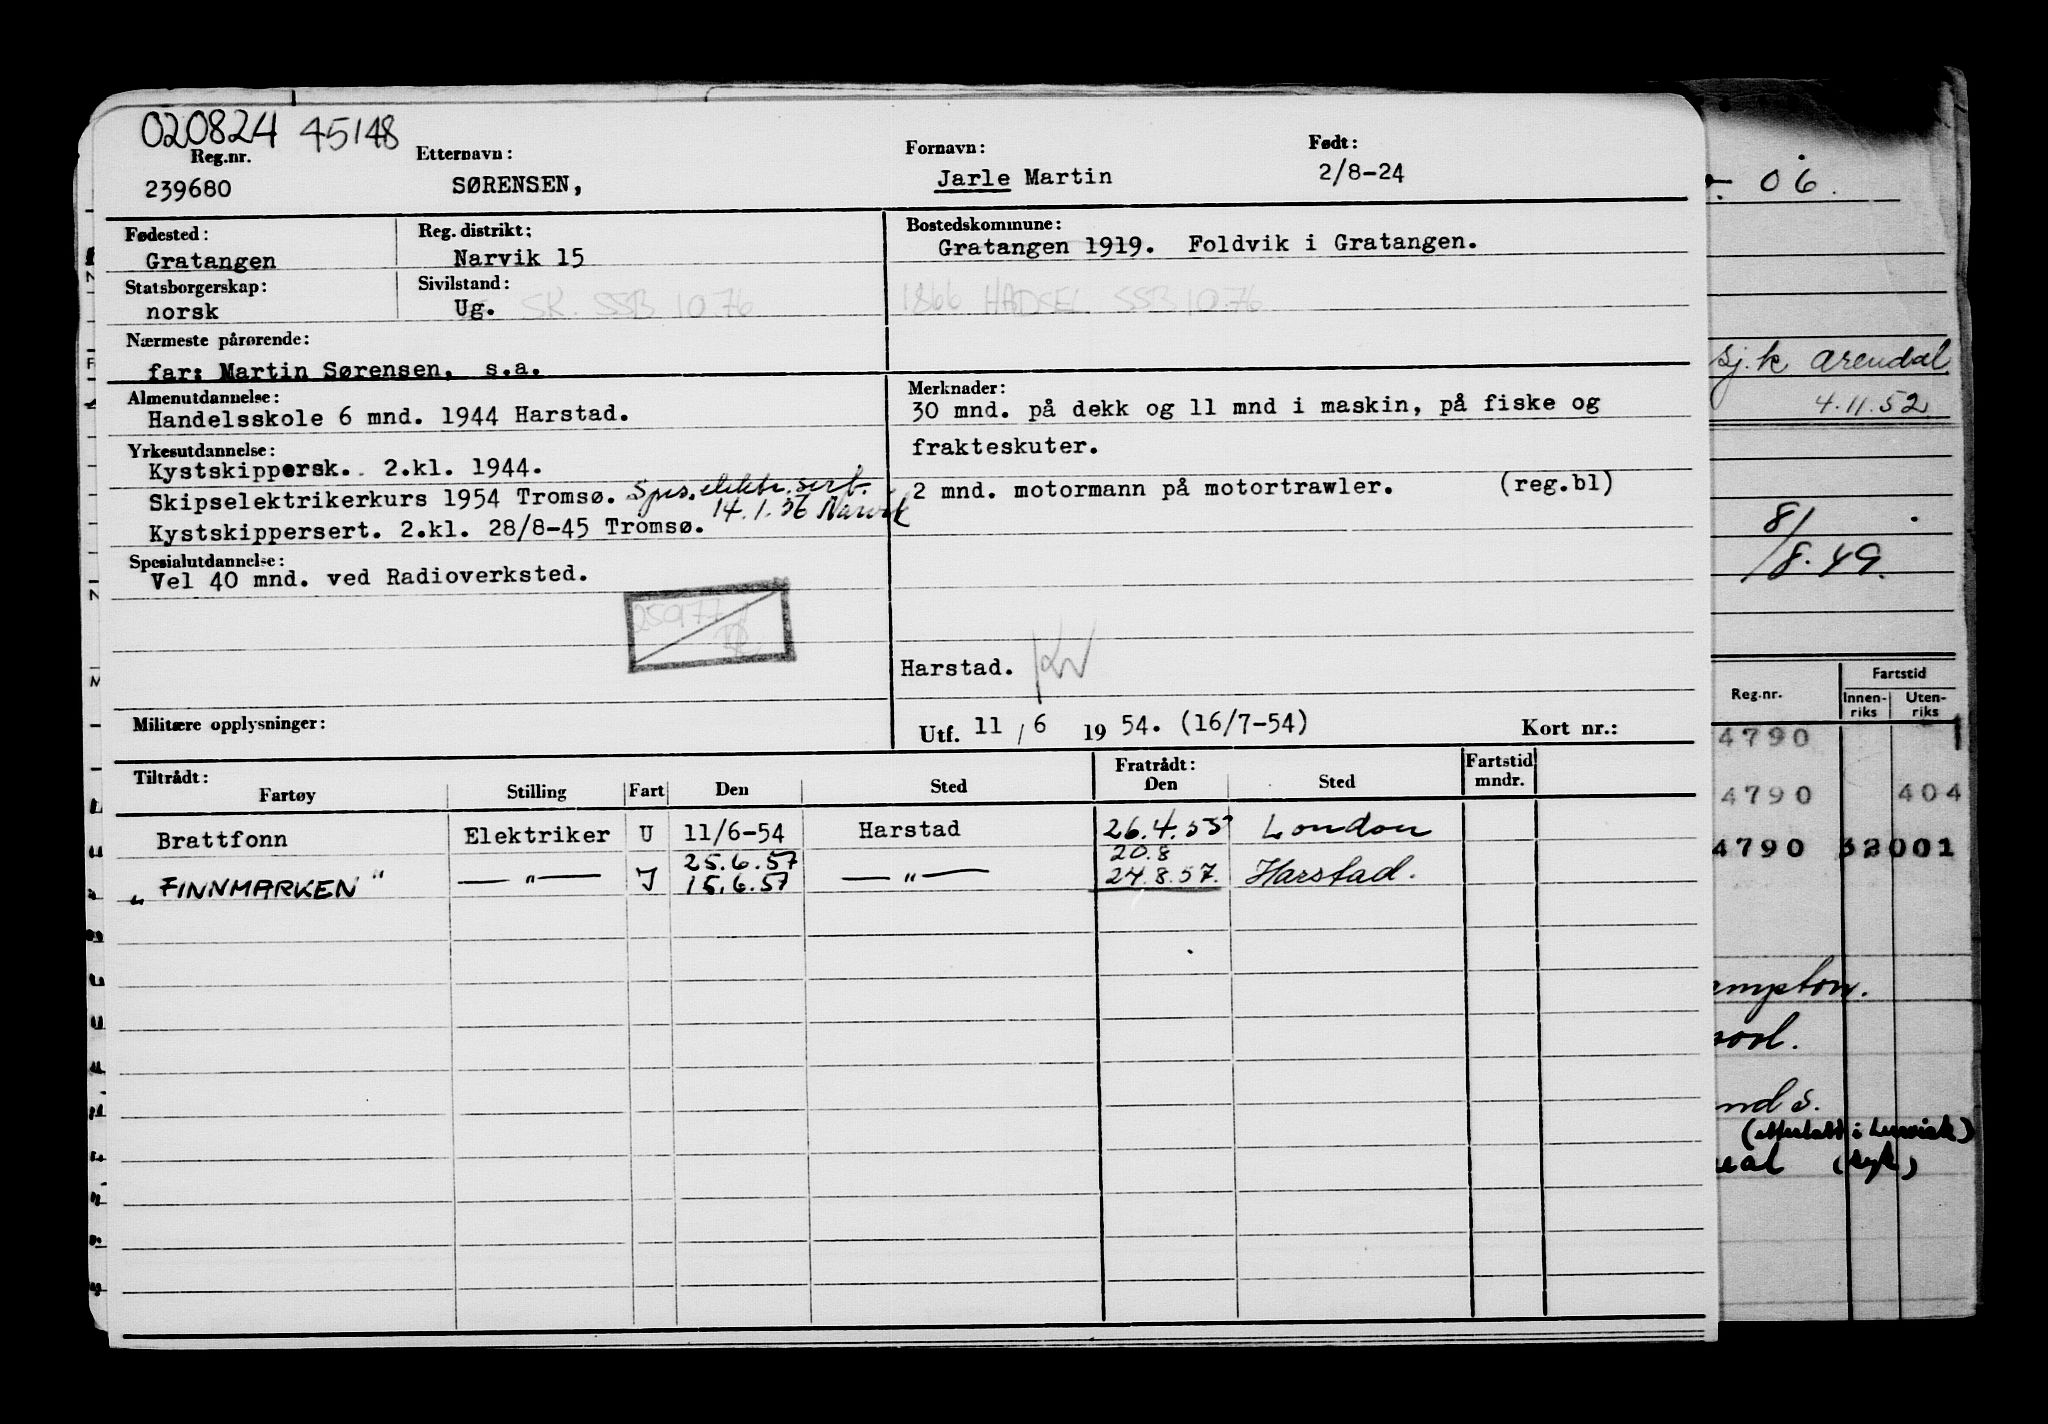 020824 45148
Reg.nr. Etternavn: Fornavn: Født:
239680 SØRENSEN, Jarle Martin 2/8-24
Fødested: Reg. distrikt: Bostedskommune:
Gratangen Narvik 15 Gratangen 1919. Foldvik i Gratangen.
Statsborgerskap: Sivilstand:
norsk Ug. SK. SSB 10 76 1866 HADSEL SSB 10.76
Nærmeste pårørende:
far: Martin Sørensen, s.a.
Almenutdannelse:
Handelsskole 6 mnd. 1944 Harstad.
Yrkesutdannelse:
Kystskippersk. 2.kl. 1944.
Skipselektrikerkurs 1954 Tromsø. Spes. elektr. sert.
14.1.56 Narvik
Kystskippersert. 2.kl. 28/8-45 Tromsø.
Spesialutdannelse:
Vel 40 mnd. ved Radioverksted.
250177
Merknader:
30 mnd. på dekk og 11 mnd i maskin, på fiske og
frakteskuter.
2 mnd. motormann på motortrawler. (reg.bl)
Harstad.
Militære opplysninger:
Utf. 11 / 6 19 54. (16/7-54) Kort nr.:
Tiltrådt: Fratrådt: Fartstid
Fartøy Stilling Fart Den Sted Den Sted mndr.
Brattfonn Elektriker U 11/6-54 Harstad 26.4.55 London
25.6.57 20.8
"FINNMARKEN" —"— I 15.6.57 —"— 24.8.57. Harstad.
06.
sj.k. Arendal
4.11.52
8/
/8.49.
Reg.nr. Fartstid
Innen-riks Uten-riks
4790 1
4790 404
4790 32001
ampton.
ool.
nd s.